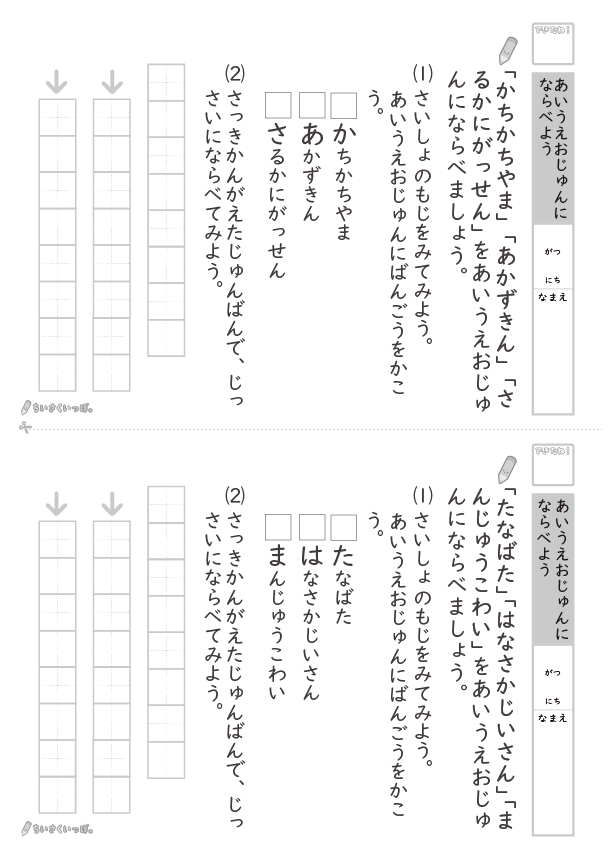 できたね！
あいうえおじゅんに
ならべよう
がつ
にち
なまえ
「かちかちやま」「あかずきん」「さ
るかにがっせん」をあいうえおじゅ
んにならべましょう。
(1)
さいしょのもじをみてみよう。
あいうえおじゅんにばんごうをかこ
う。
かちかちやま
あかずきん
さるかにがっせん
(2)
さっきかんがえたじゅんばんで、じっ
さいにならべてみよう。
ちいさくいっぽ。
できたね！
あいうえおじゅんに
ならべよう
がつ
にち
なまえ
「たなばた」「はなさかじいさん」「ま
んじゅうこわい」をあいうえおじゅ
んにならべましょう。
(1)
さいしょのもじをみてみよう。
あいうえおじゅんにばんごうをかこ
う。
たなばた
はなさかじいさん
まんじゅうこわい
(2)
さっきかんがえたじゅんばんで、じっ
さいにならべてみよう。
ちいさくいっぽ。